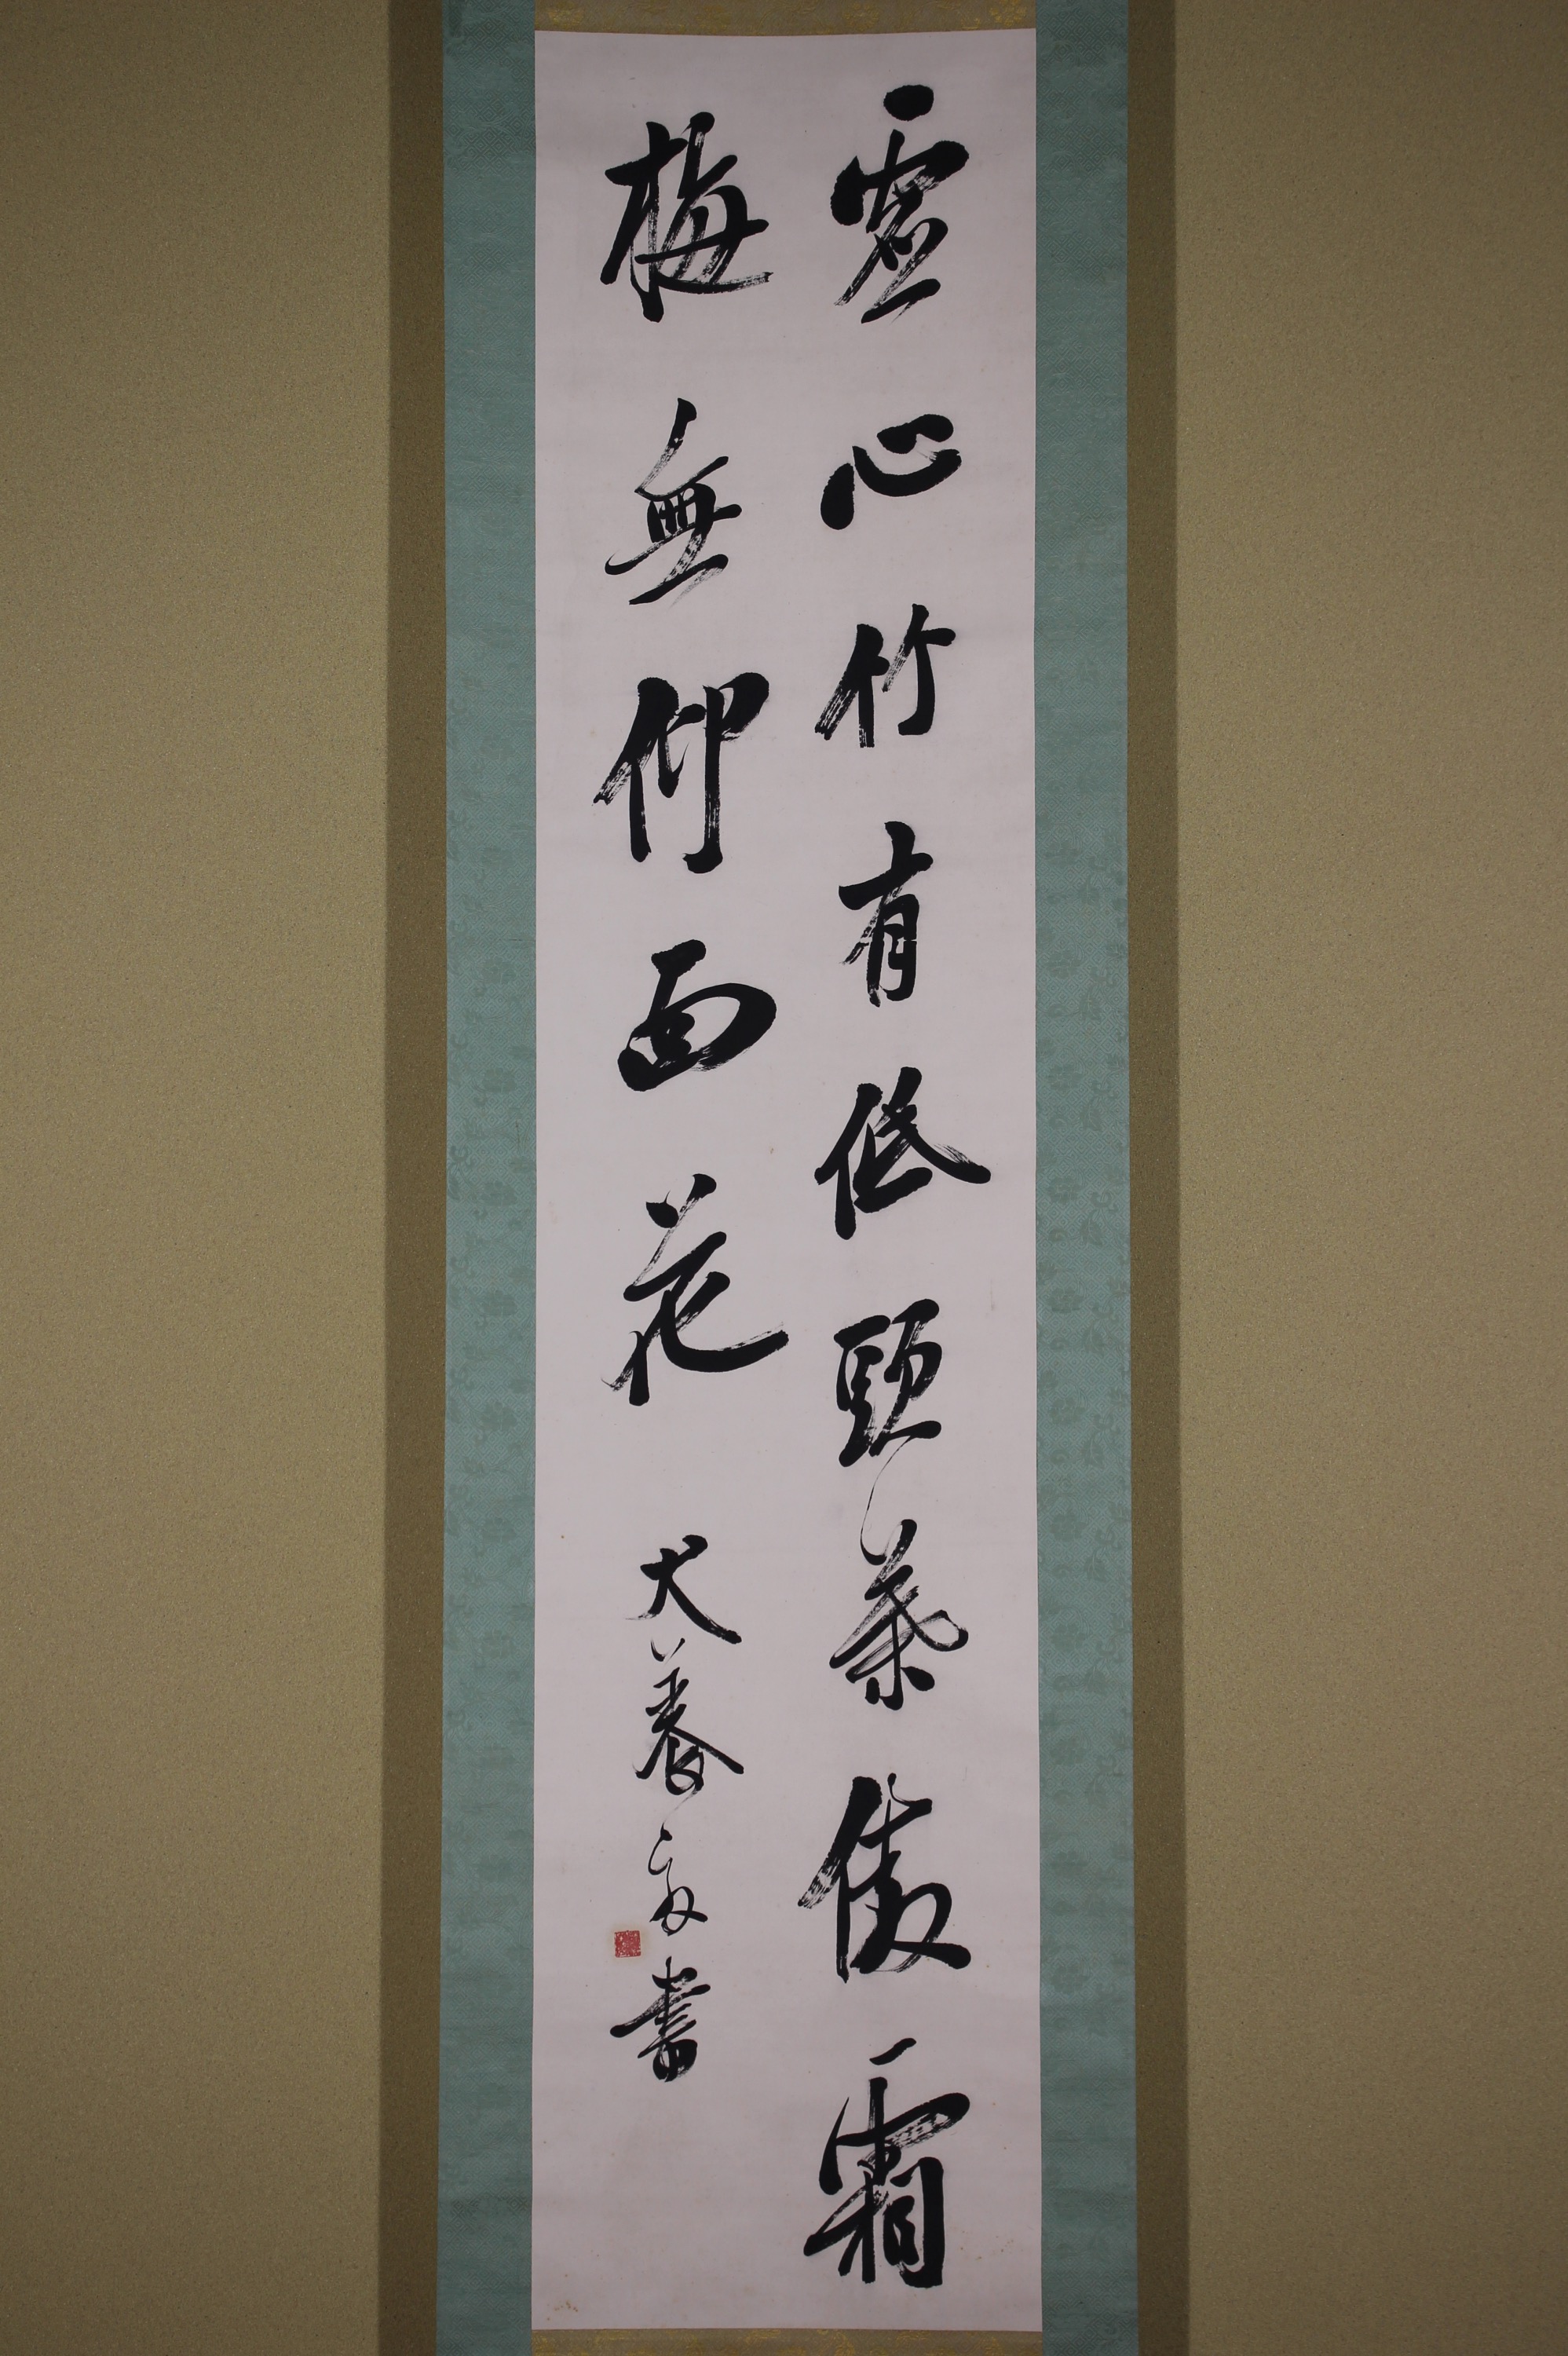 虚心竹有低頭葉傲霜
梅無仰面花 犬養毅書